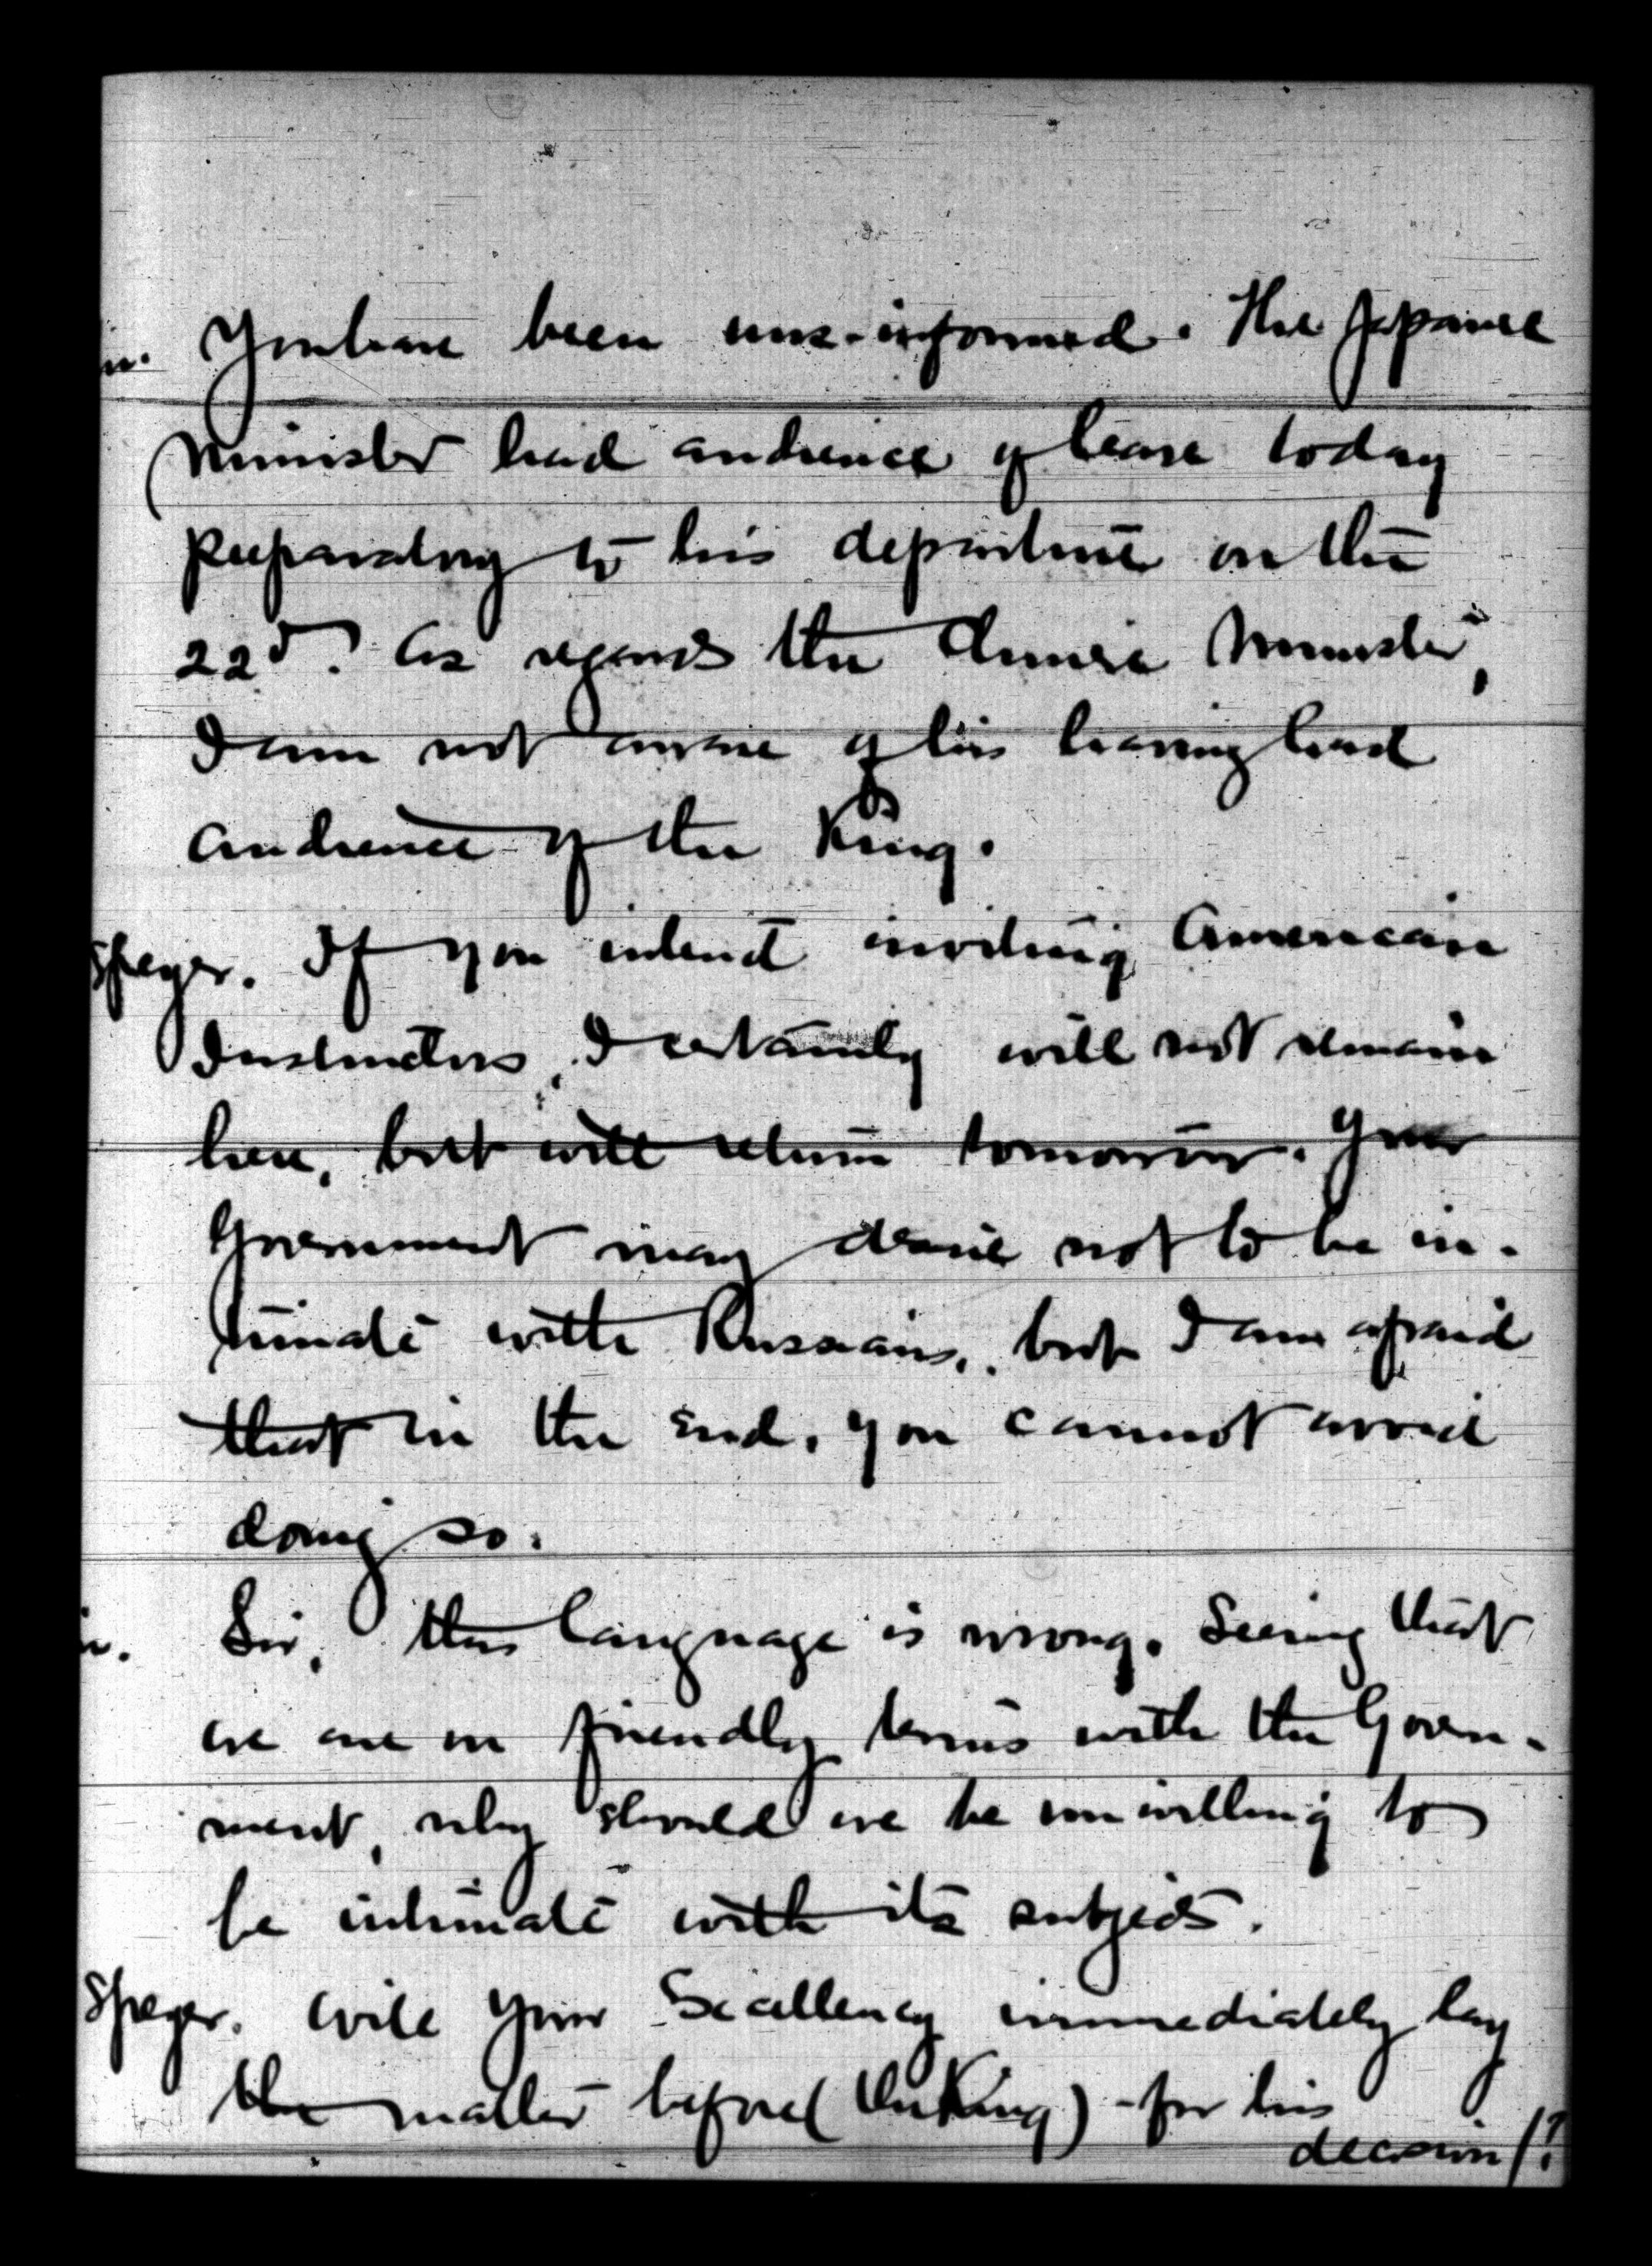 n. You have been mis-informed. The Japanese
Minister had audience of leave today
preparatory to his departure on the
22d. As regards the Chinese Minister,
I am not aware of his having had
audience of the King.
Speyer. If you intend inviting American
Instructors, I certainly will not remain
here, but will return tomorrow. Your
Government may desire not to be in-
timate with Russians, but I am afraid
that in the end, you cannot avoid
doing so.
n. Sir, this language is wrong. Seeing that
we are on friendly terms with the Govern-
ment, why should we be unwilling to
be intimate with its subjects.
Speyer. Will Your Excellency immediately lay
the matter before (the King) - for his
decision/?